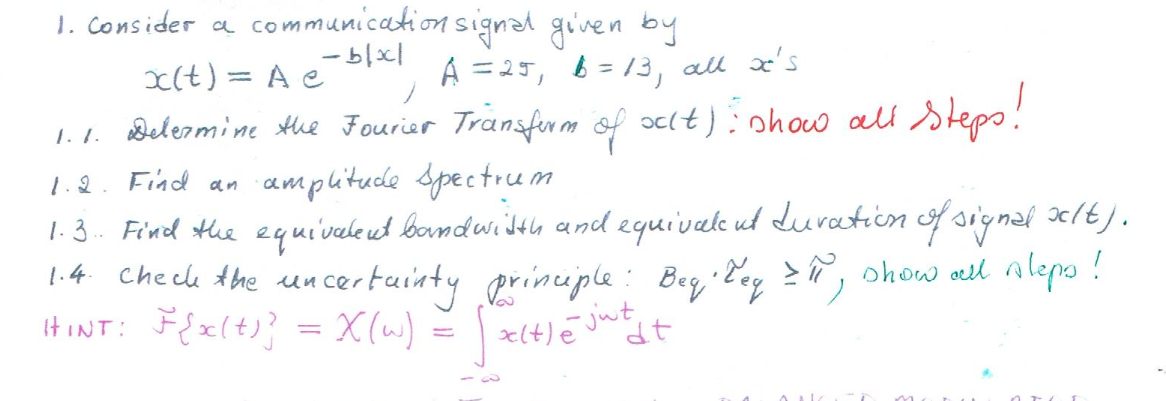 1. Consider a communication signal given by
x(t) = A e^{-b|x|}, A = 25, b = 13, all x's
1.1. Determine the Fourier Transform of x(t): show all steps!
1.2. Find an amplitude spectrum
1.3.. Find the equivalent bandwidth and equivalent duration of signal x(t).
1.4. Check the uncertainty principle: Beq · τeq ≥ π, show all steps!
HINT: F{x(t)} = X(ω) = ∫_{-∞}^{∞} x(t) e^{-jωt} dt